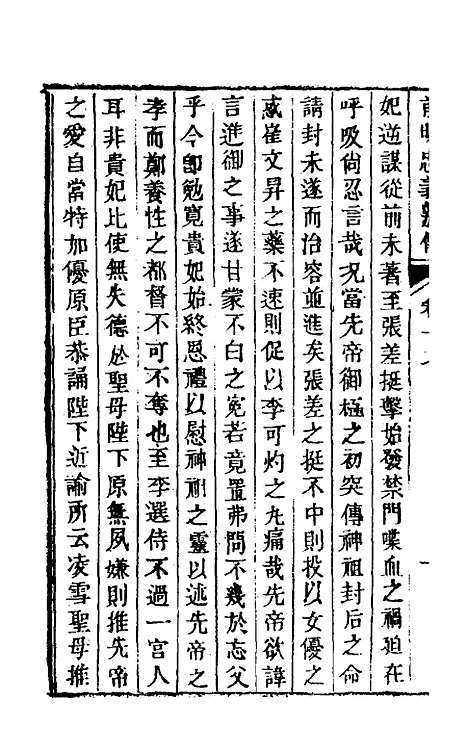 前明忠義別傳 卷十
妃逆謀從前未著至張差挺擊始發禁門喋血之禍廹在
呼吸尙忍言哉况當先帝御極之初突傳神祖封后之命
請封未遂而冶容並進矣張差之挺不中則投以女優之
惑崔文昇之藥不速則促以李可灼之丸痛哉先帝欲諱
言進御之事遂甘蒙不白之寃若竟置弗問不幾於忘父
乎今卽勉寛貴妃始終恩禮以慰神祖之靈以述先帝之
孝而鄭養性之都督不可不奪也至李選侍不過一宫人
耳非貴妃比使無失德於聖母陛下原無夙嫌則推先帝
之愛自當特加優原臣恭誦陛下近諭所云凌雪聖母推